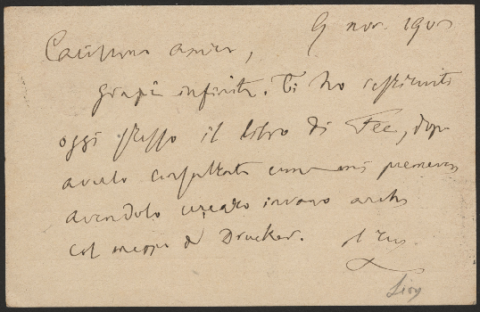 9 nov. 190
Carissimo amico,
Grazie infinite. Ti ho restituito
oggi stesso il libro di Fée, dopo
averlo consultato come mi premeva,
avendolo cercato invano anche
col mezzo di Drucker. Il tuo